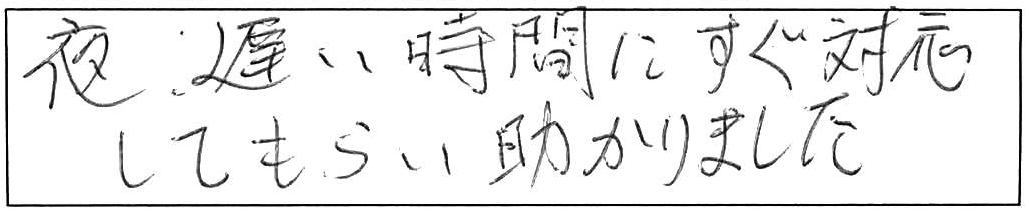 夜遅い時間にすぐ対応
してもらい助かりました